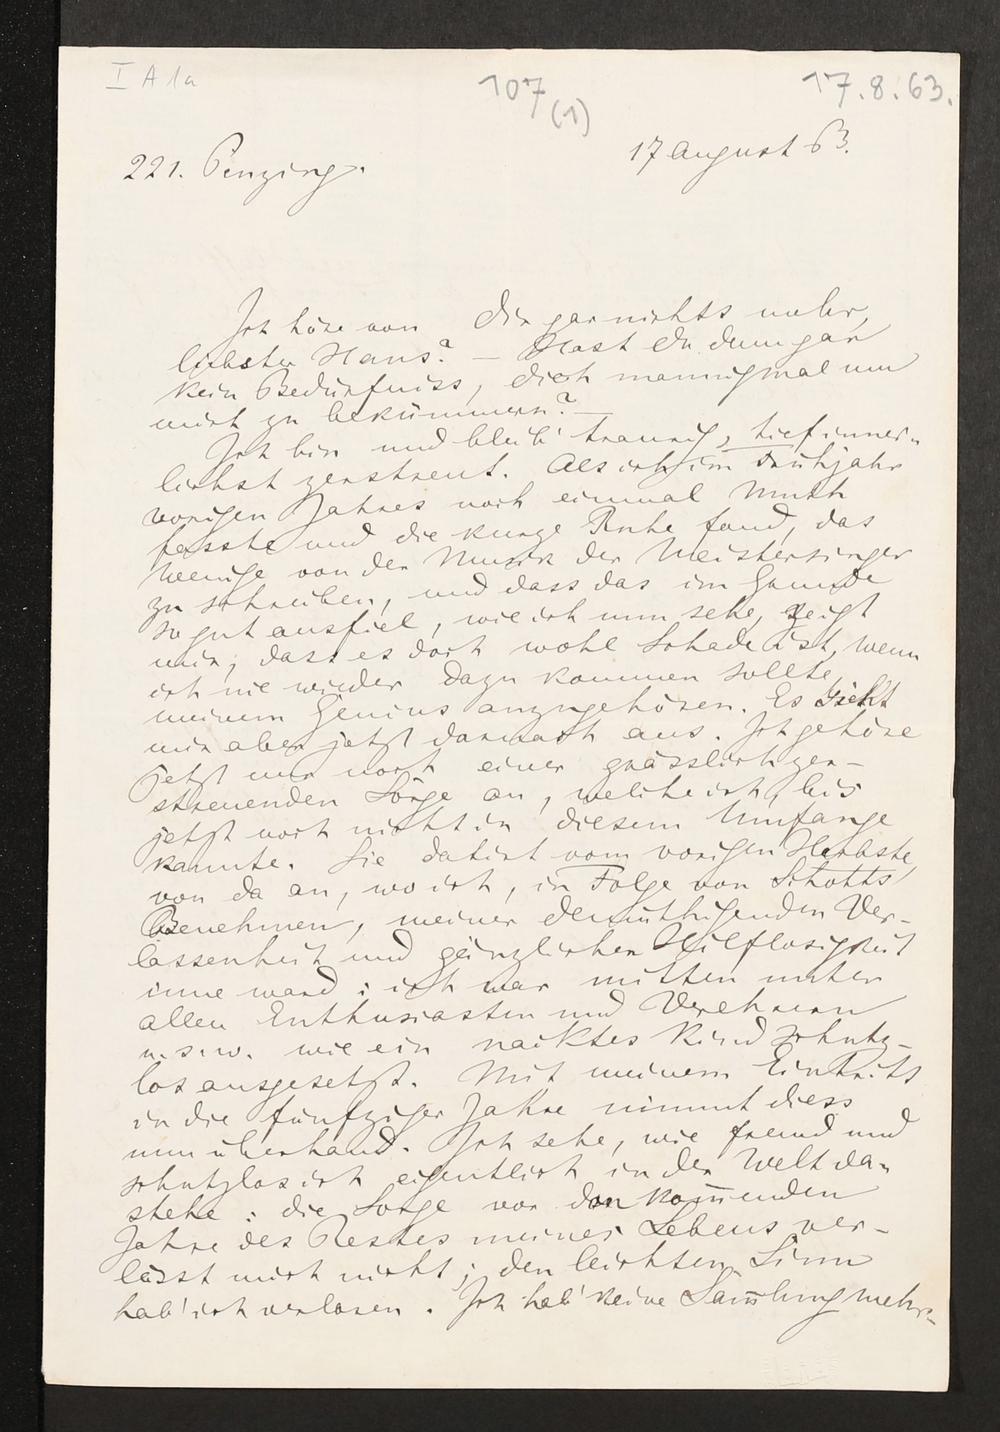 I A 1a
107 (1)
17.8.63.
221. Penzing.
17 August 63.
Ich höre von Dir gar nichts mehr,
liebster Hans? — Hast Du denn gar
kein Bedürfniss, dich mannigmal um
mich zu bekümmern? —
Ich bin und bleib' traurig, tief inner-
lichst zerstreut. Als ich im Frühjahr
vorigen Jahres noch einmal Muth
fasste und die kurze Ruhe fand, das
Wenige von der Musik der Meistersinger
zu schreiben, und dass das im Grunde
so gut ausfiel, wie ich nun sehe, zeigt
mir, dass es doch wohl Schade ist, wenn
ich nie wieder dazu kommen sollte,
meinem Genius anzugehören. Es sieht
mir aber jetzt darnach aus. Ich gehöre
jetzt nur noch einer grässlich zer-
streuenden Sorge an, welche ich, bis
jetzt noch nicht in diesem Umfange
kannte. Sie datirt vom vorigen Herbste,
von da an, wo ich, in Folge von Schotts
Benehmen, meiner demüthigenden Ver-
lassenheit und gänzlichen Hilflosigkeit
inne ward: ich war mitten unter
allen Enthusiasten und Verehrern
u.s.w. wie ein nacktes Kind schutz-
los ausgesetzt. Mit meinem Eintritt
in die fünfziger Jahre nimmt diess
nun überhand. Ich sehe, wie fremd und
schutzlos ich eigentlich in der Welt da-
stehe: die Sorge vor den kom̅enden
Jahre des Restes meines Lebens ver-
lässt mich nicht; den leichten Sinn
hab' ich verloren. Ich hab' keine Sam̅lung mehr-